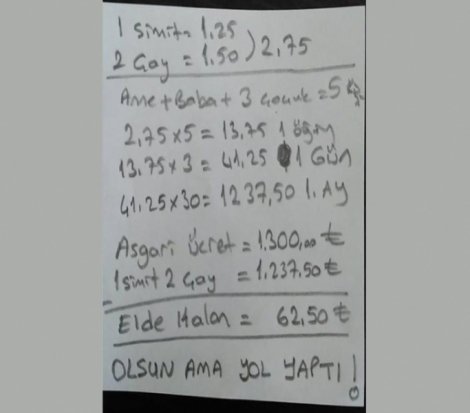 1 Simit = 1.25
2 Çay = 1.50 ) 2,75
Anne + Baba + 3 Çocuk = 5 Kişi
2,75x5 = 13,75 1 öğün
13.75x3 = 41,25 1 GÜN
41.25x30 = 1237,50 1. AY
Asgari Ücret = 1.300,00 ₺
1 Simit 2 Çay = 1.237.50 ₺
Elde Kalan = 62,50 ₺
OLSUN AMA YOL YAPTI !